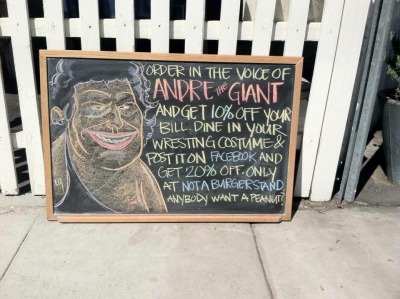 ORDER IN THE VOICE OF
ANDRE THE GIANT
AND GET 10% OFF YOUR
BILL. DINE IN YOUR
WRESTING COSTUME &
POST IT ON FACEBOOK AND
GET 20% OFF. ONLY
AT NOT A BURGER STAND
ANYBODY WANT A PEANUT?